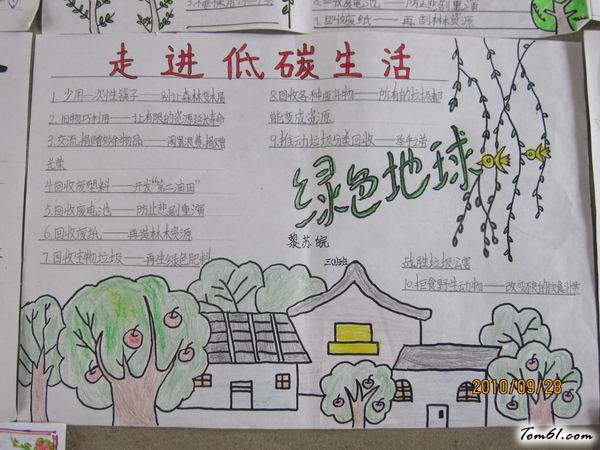 走进低碳生活
1. 少用一次性筷子——别让森林变木屑
2. 旧物巧利用——让有限的资源延长寿命
3. 交流、捐赠多余物品——闲置浪费,捐赠
光荣
4. 回收废塑料——开发“第二油田”
5. 回收废电池——防止悲剧重演
6. 回收废纸——再造林木资源
7. 回收生物垃圾——再生绿色肥料
8. 回收各种废弃物——所有的垃圾都
能变成资源
9. 推动垃圾分类回收——举手之劳
绿色地球
黎苏皖
三(1)班
战胜垃圾公害
10. 拒食野生动物——改变不良的饮食习惯
8. 回收废电池——防止悲剧重演
9. 回收废纸——再创林木资源
2010/09/28
Tom61.com